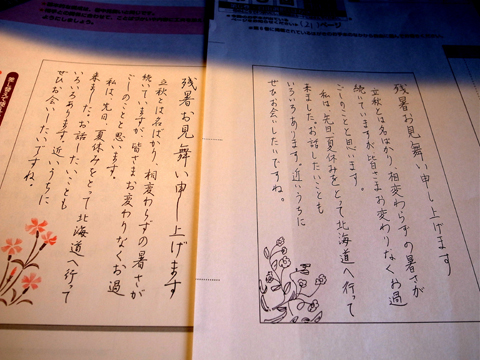 残暑お見舞い申し上げます
立秋とは名ばかり、相変わらずの暑さが
続いていますが皆さまお変わりなくお過
ごしのことと思います。
私は、先日、夏休みをとって北海道へ行って
来ました。お話したいことも
いろいろあります。近いうちに
ぜひお会いしたいですね。
残暑お見舞い申し上げます
立秋とは名ばかり、相変わらずの暑さが
続いていますが、皆さまお変わりなくお過
ごしのことと思います。
私は、先日、夏休みをとって北海道へ行って
来ました。お話したいことも
いろいろあります。近いうちに
ぜひお会いしたいですね。